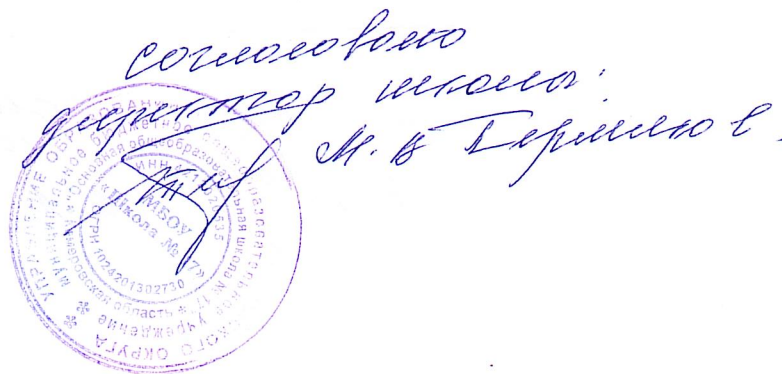 согласовано
директор школы:
М. В
УПРАВЛЕНИЕ ОБРАЗОВАНИЯ ОКРУГА
муниципальное бюджетное общеобразовательное учреждение
«Основная общеобразовательная школа № 17»
Кемеровская область
ОГРН 1024201302730
ИНН
МБОУ
«Школа № 17»